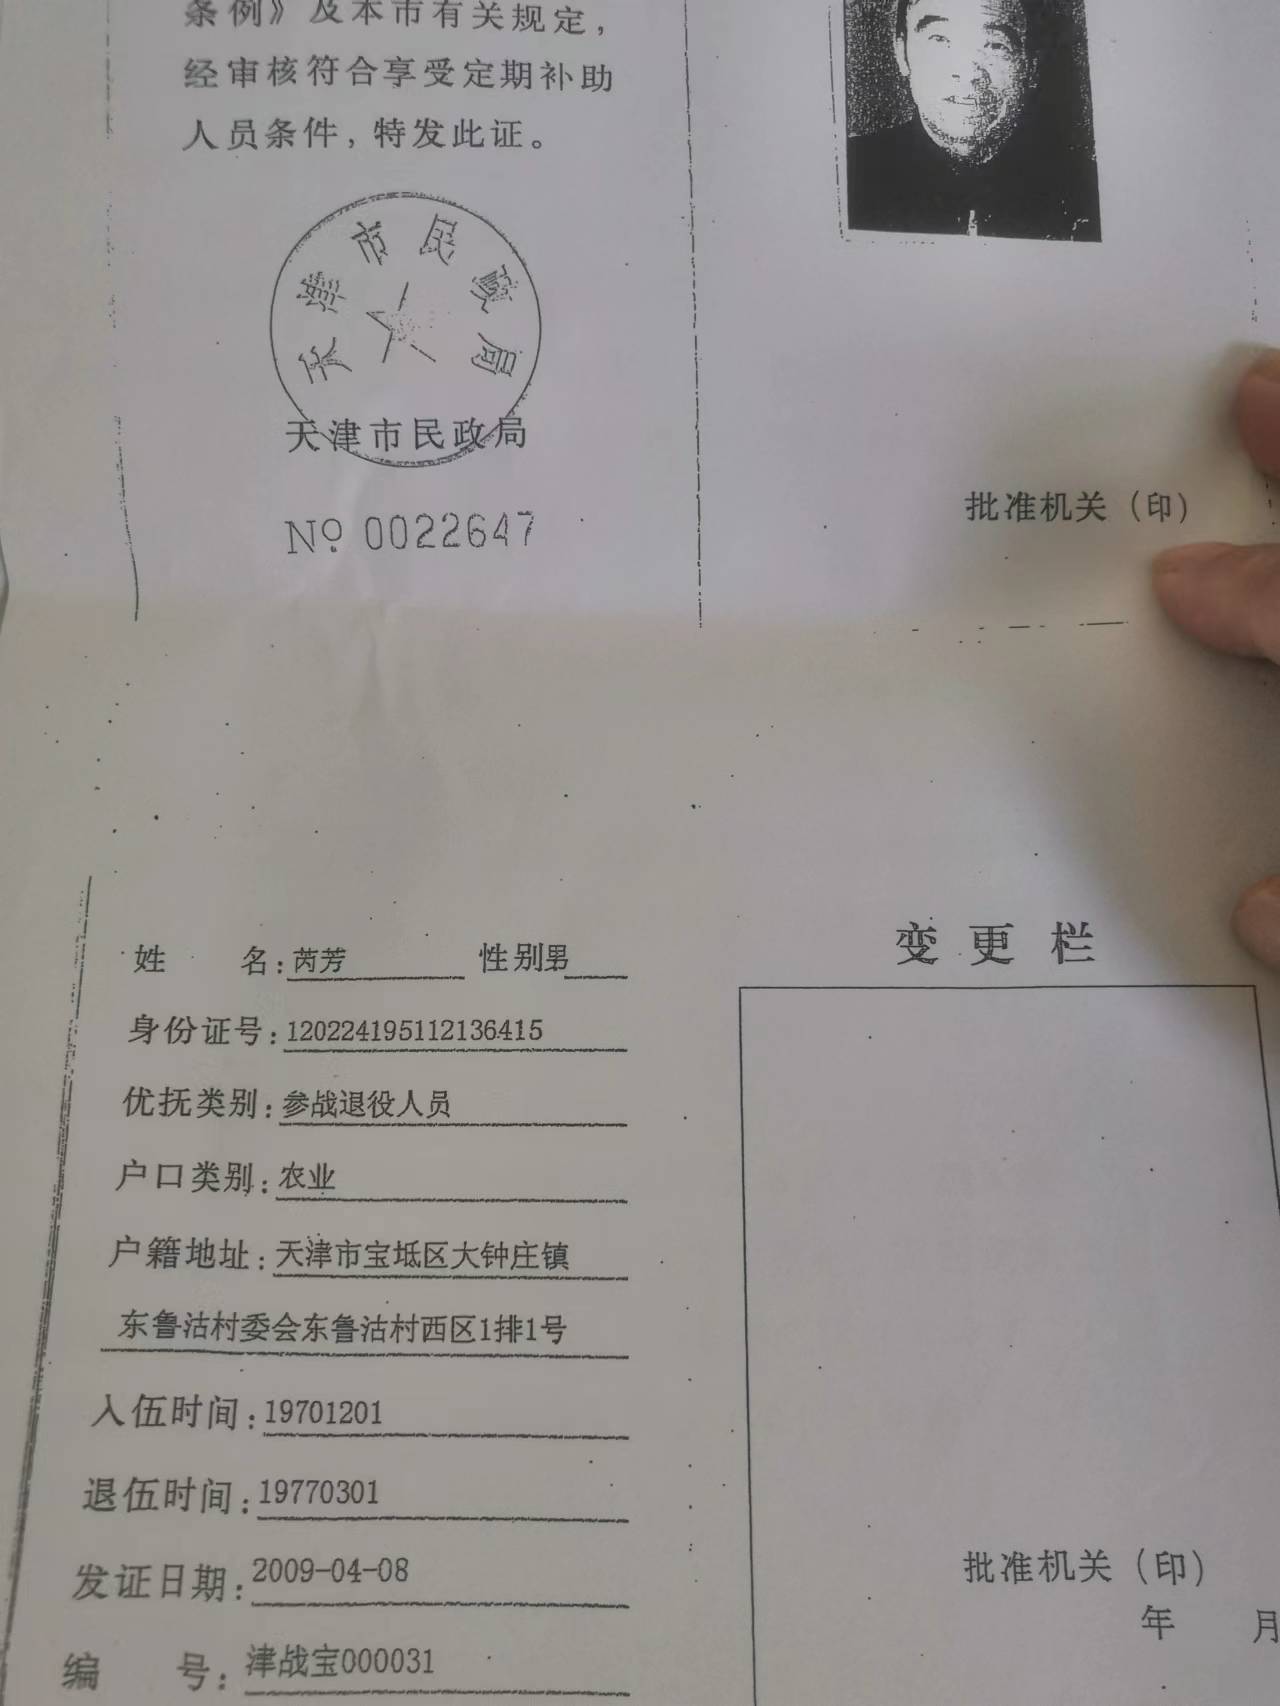 条例》及本市有关规定，
经审核符合享受定期补助
人员条件，特发此证。
天津市民政局
天津市民政局
№ 0022647
批准机关（印）
姓 名：芮芳 性别男
身份证号：120224195112136415
优抚类别：参战退役人员
户口类别：农业
户籍地址：天津市宝坻区大钟庄镇
东鲁沽村委会东鲁沽村西区1排1号
入伍时间：19701201
退伍时间：19770301
发证日期：2009-04-08
编 号：津战宝000031
变更栏
批准机关（印）
年 月